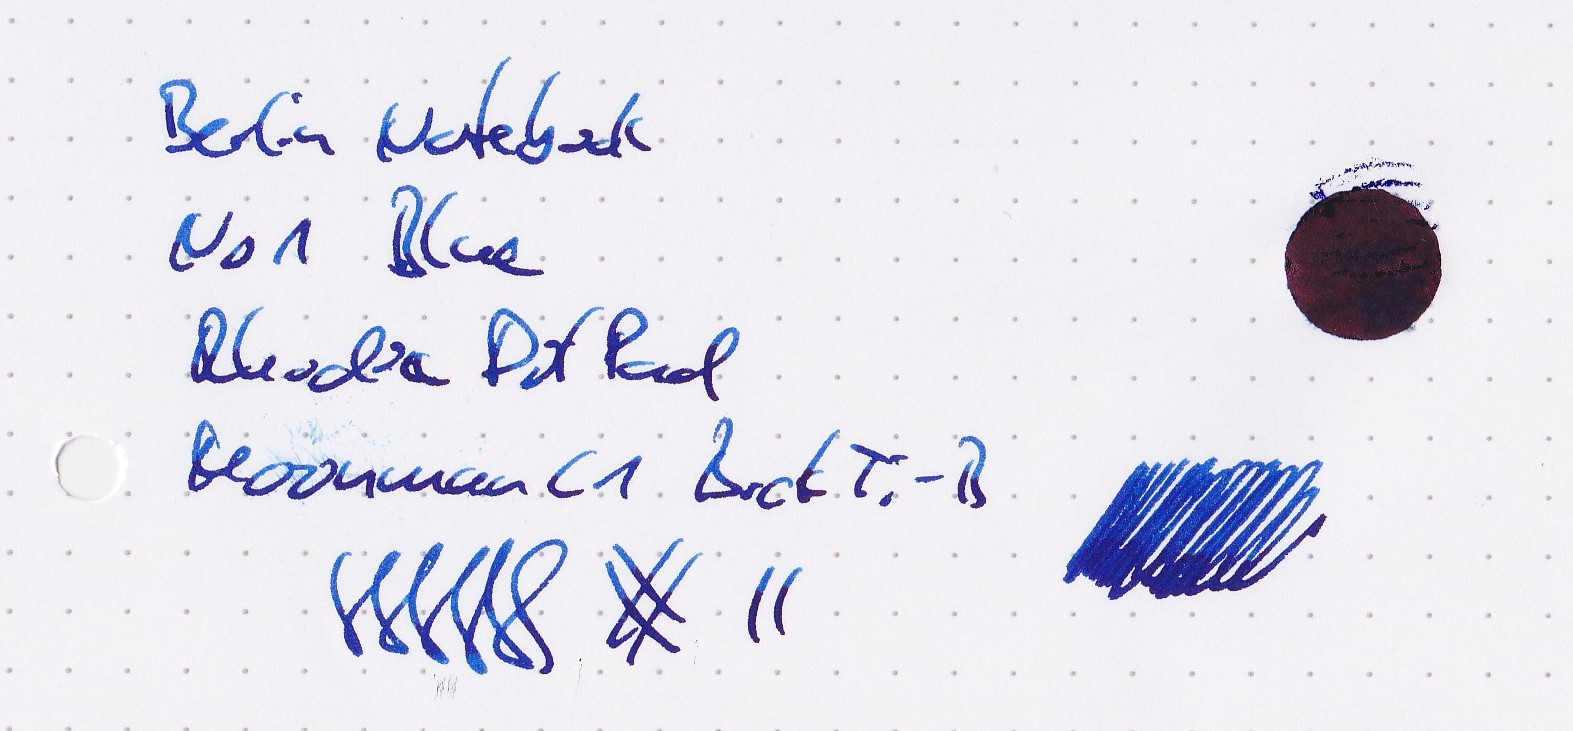 Berlin Notebook
No 1 Blue
Rhodia Dot Pad
Moonman C1 Bock Ti-B